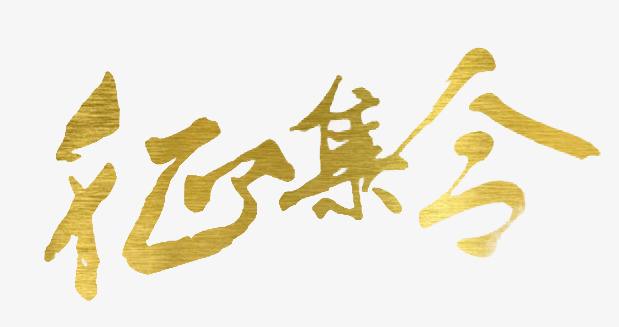 征集令